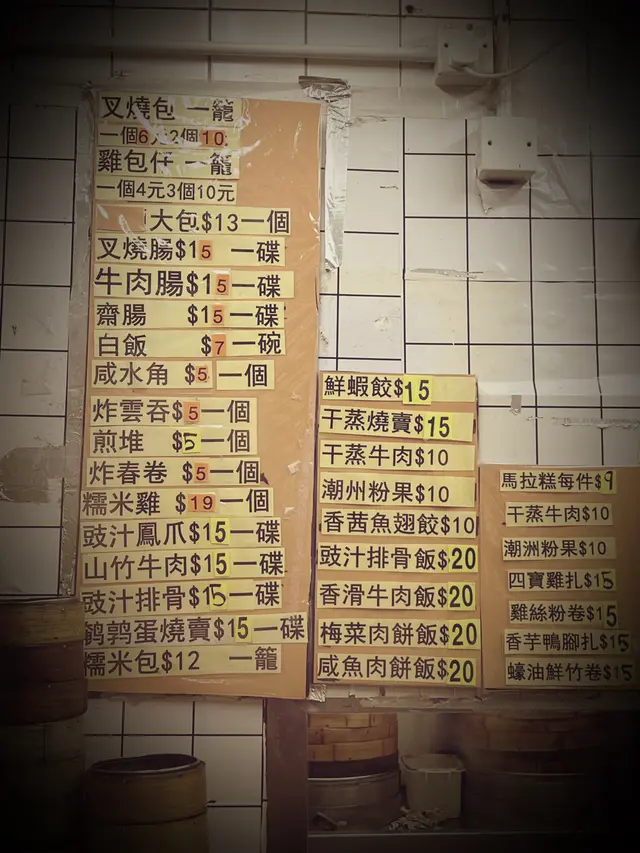 叉燒包 一籠
一個6元2個10
雞包仔 一籠
一個4元3個10元
大包$13一個
叉燒腸$15 一碟
牛肉腸$15一碟
齋腸 $15一碟
白飯 $7一碗
咸水角 $5 一個
炸雲吞$5一個
煎堆 $5一個
炸春卷 $5一個
糯米雞 $19一個
豉汁鳳爪$15一碟
山竹牛肉$15一碟
豉汁排骨$15一碟
鹌鹑蛋燒賣$15一碟
糯米包$12 一籠
鮮蝦餃$15
干蒸燒賣$15
干蒸牛肉$10
潮州粉果$10
香茜魚翅餃$10
豉汁排骨飯$20
香滑牛肉飯$20
梅菜肉餅飯$20
咸魚肉餅飯$20
馬拉糕每件$9
干蒸牛肉$10
潮洲粉果$10
四寶雞扎$15
雞絲粉卷$15
香芋鴨腳扎$15
蠔油鮮竹卷$15